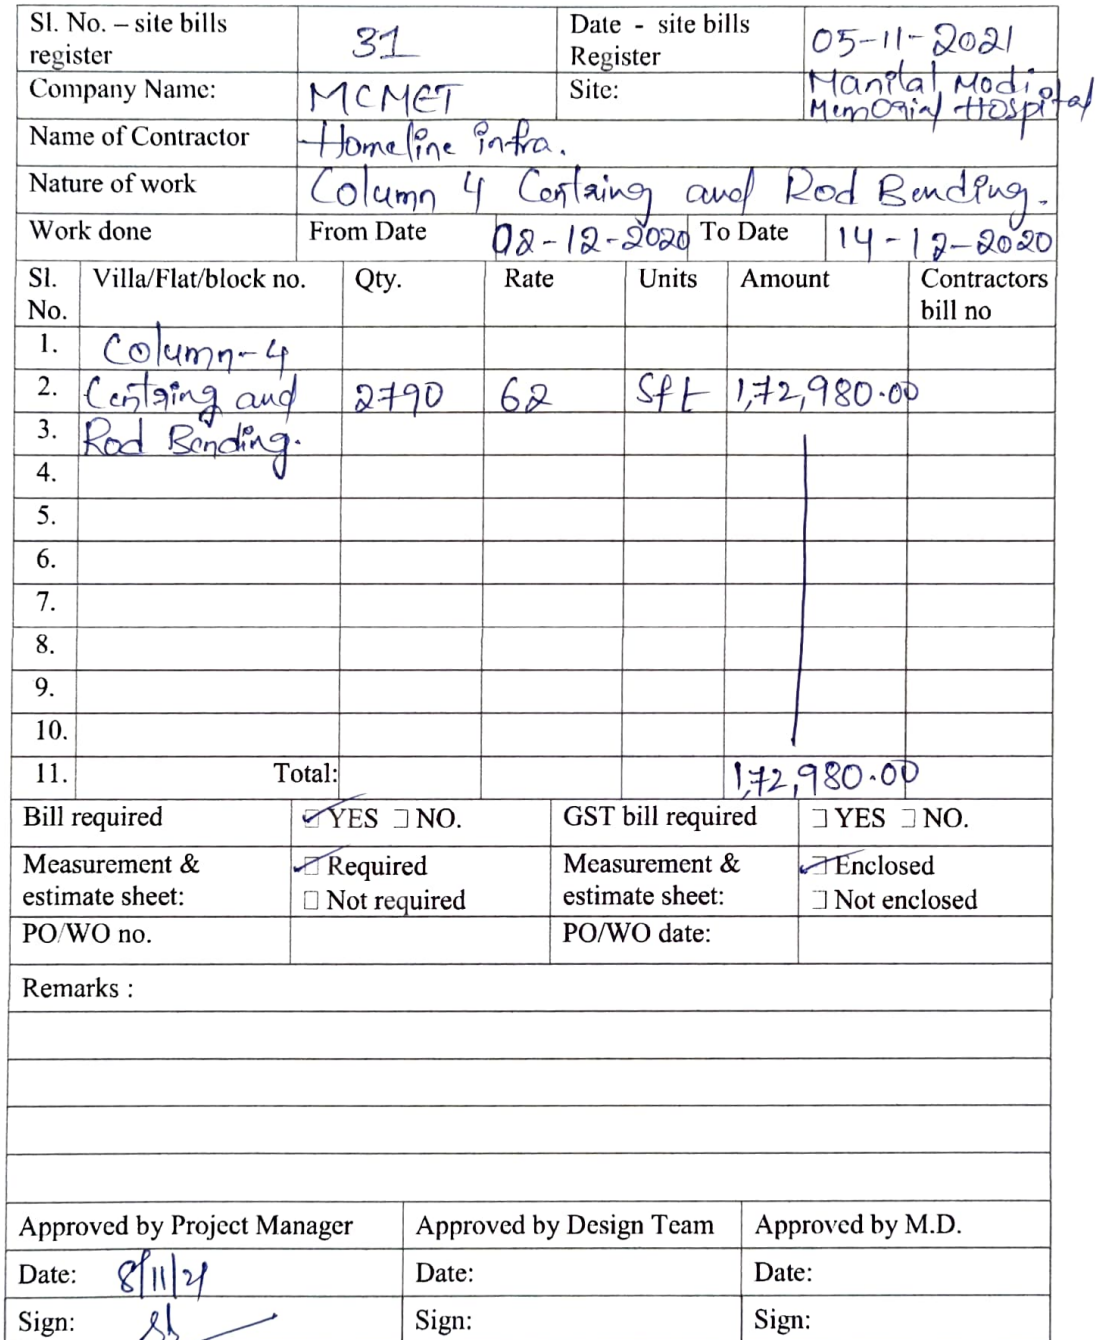 Sl. No. – site bills register 31 Date - site bills Register 05-11-2021
Company Name: MCMET Site: Manilal Modi Memorial Hospital
Name of Contractor Homeline infra.
Nature of work Column 4 Centring and Rod Bending.
Work done From Date 02-12-2020 To Date 14-12-2020
Sl. No. Villa/Flat/block no. Qty. Rate Units Amount Contractors bill no
1. Column-4
2. Centring and 2790 62 Sft 1,72,980.00
3. Rod Bending.
4.
5.
6.
7.
8.
9.
10.
11. Total: 1,72,980.00
Bill required ☑ YES ☐ NO. GST bill required ☐ YES ☐ NO.
Measurement & estimate sheet: ☑ Required ☐ Not required Measurement & estimate sheet: ☑ Enclosed ☐ Not enclosed
PO/WO no. PO/WO date:
Remarks :
Approved by Project Manager Approved by Design Team Approved by M.D.
Date: 8/11/21 Date: Date:
Sign: Sign: Sign: